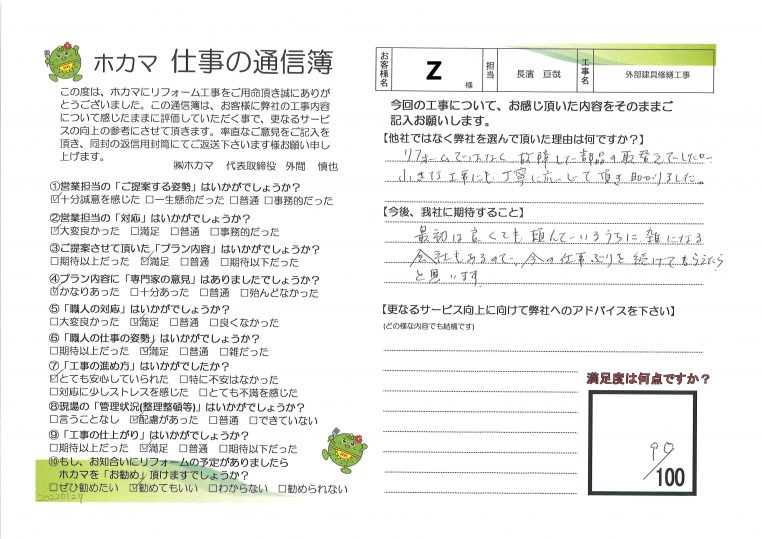 ホカマ 仕事の通信簿
この度は、ホカマにリフォーム工事をご用命頂き誠にありが
とうございました。この通信簿は、お客様に弊社の工事内容
について感じたままに評価していただく事で、更なるサービ
スの向上の参考にさせて頂きます。率直なご意見をご記入を
頂き、同封の返信用封筒にてご返送下さいます様お願い申し
上げます。
㈱ホカマ 代表取締役 外間 慎也
①営業担当の「ご提案する姿勢」はいかがでしょうか?
☑十分誠意を感じた □一生懸命だった □普通 □事務的だった
②営業担当の「対応」はいかがでしょうか?
☑大変良かった □満足 □普通 □事務的だった
③ご提案させて頂いた「プラン内容」はいかがでしょうか?
□期待以上だった ☑満足 □普通 □期待以下だった
④プラン内容に「専門家の意見」はありましたでしょうか?
☑かなりあった □十分あった □普通 □殆んどなかった
⑤「職人の対応」はいかがでしたか?
□大変良かった ☑満足 □普通 □良くなかった
⑥「職人の仕事の姿勢」はいかがでしょうか?
□期待以上だった ☑満足 □普通 □雑だった
⑦「工事の進め方」はいかがでしたか?
☑とても安心していられた □特に不安はなかった
□対応に少しストレスを感じた □とても不満を感じた
⑧現場の「管理状況(整理整頓等)」はいかがでしょうか?
□言うことなし ☑配慮があった □普通 □できていない
⑨「工事の仕上がり」はいかがでしょうか?
□期待以上だった ☑満足 □普通 □期待以下だった
⑩もし、お知合いにリフォームの予定がありましたら
ホカマを「お勧め」頂けますでしょうか?
□ぜひ勧めたい ☑勧めてもいい □わからない □勧められない
20220127
お客様名 Z 様 担当 長濱 亘哉 工事名 外部建具修繕工事
今回の工事について、お感じ頂いた内容をそのままご
記入お願いします。
【他社ではなく弊社を選んで頂いた理由は何ですか?】
リフォームではなく 故障した部品の取替えでしたが
小さな工事にも丁寧に応じて頂き助かりました。
【今後、我社に期待すること】
最初は良くても 頼んでいるうちに 雑になる
会社もあるので、今の仕事ぶりを続けてもらえたら
と思います。
【更なるサービス向上に向けて弊社へのアドバイスを下さい】
(どの様な内容でも結構です)
満足度は何点ですか?
90
/100